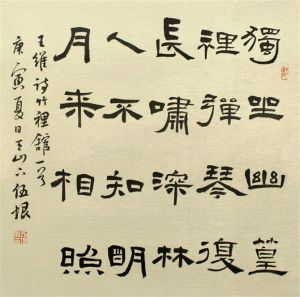 獨坐幽篁
裡彈琴復
長嘯深林
人不知明
月來相照
王維詩竹裡館一首
庚寅夏日